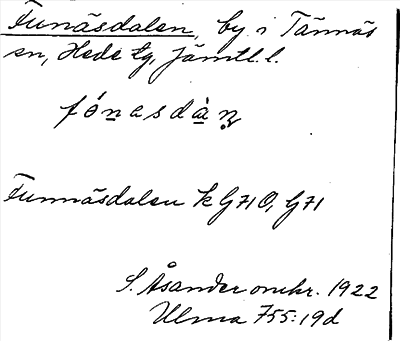 Funäsdalen, by i Tännäs
sn, Hede tg, Jämtl. l.
fónasdàn̥
Funnäsdalen k G710, G71
S. Åsander omkr. 1922
Ulma 755:19d